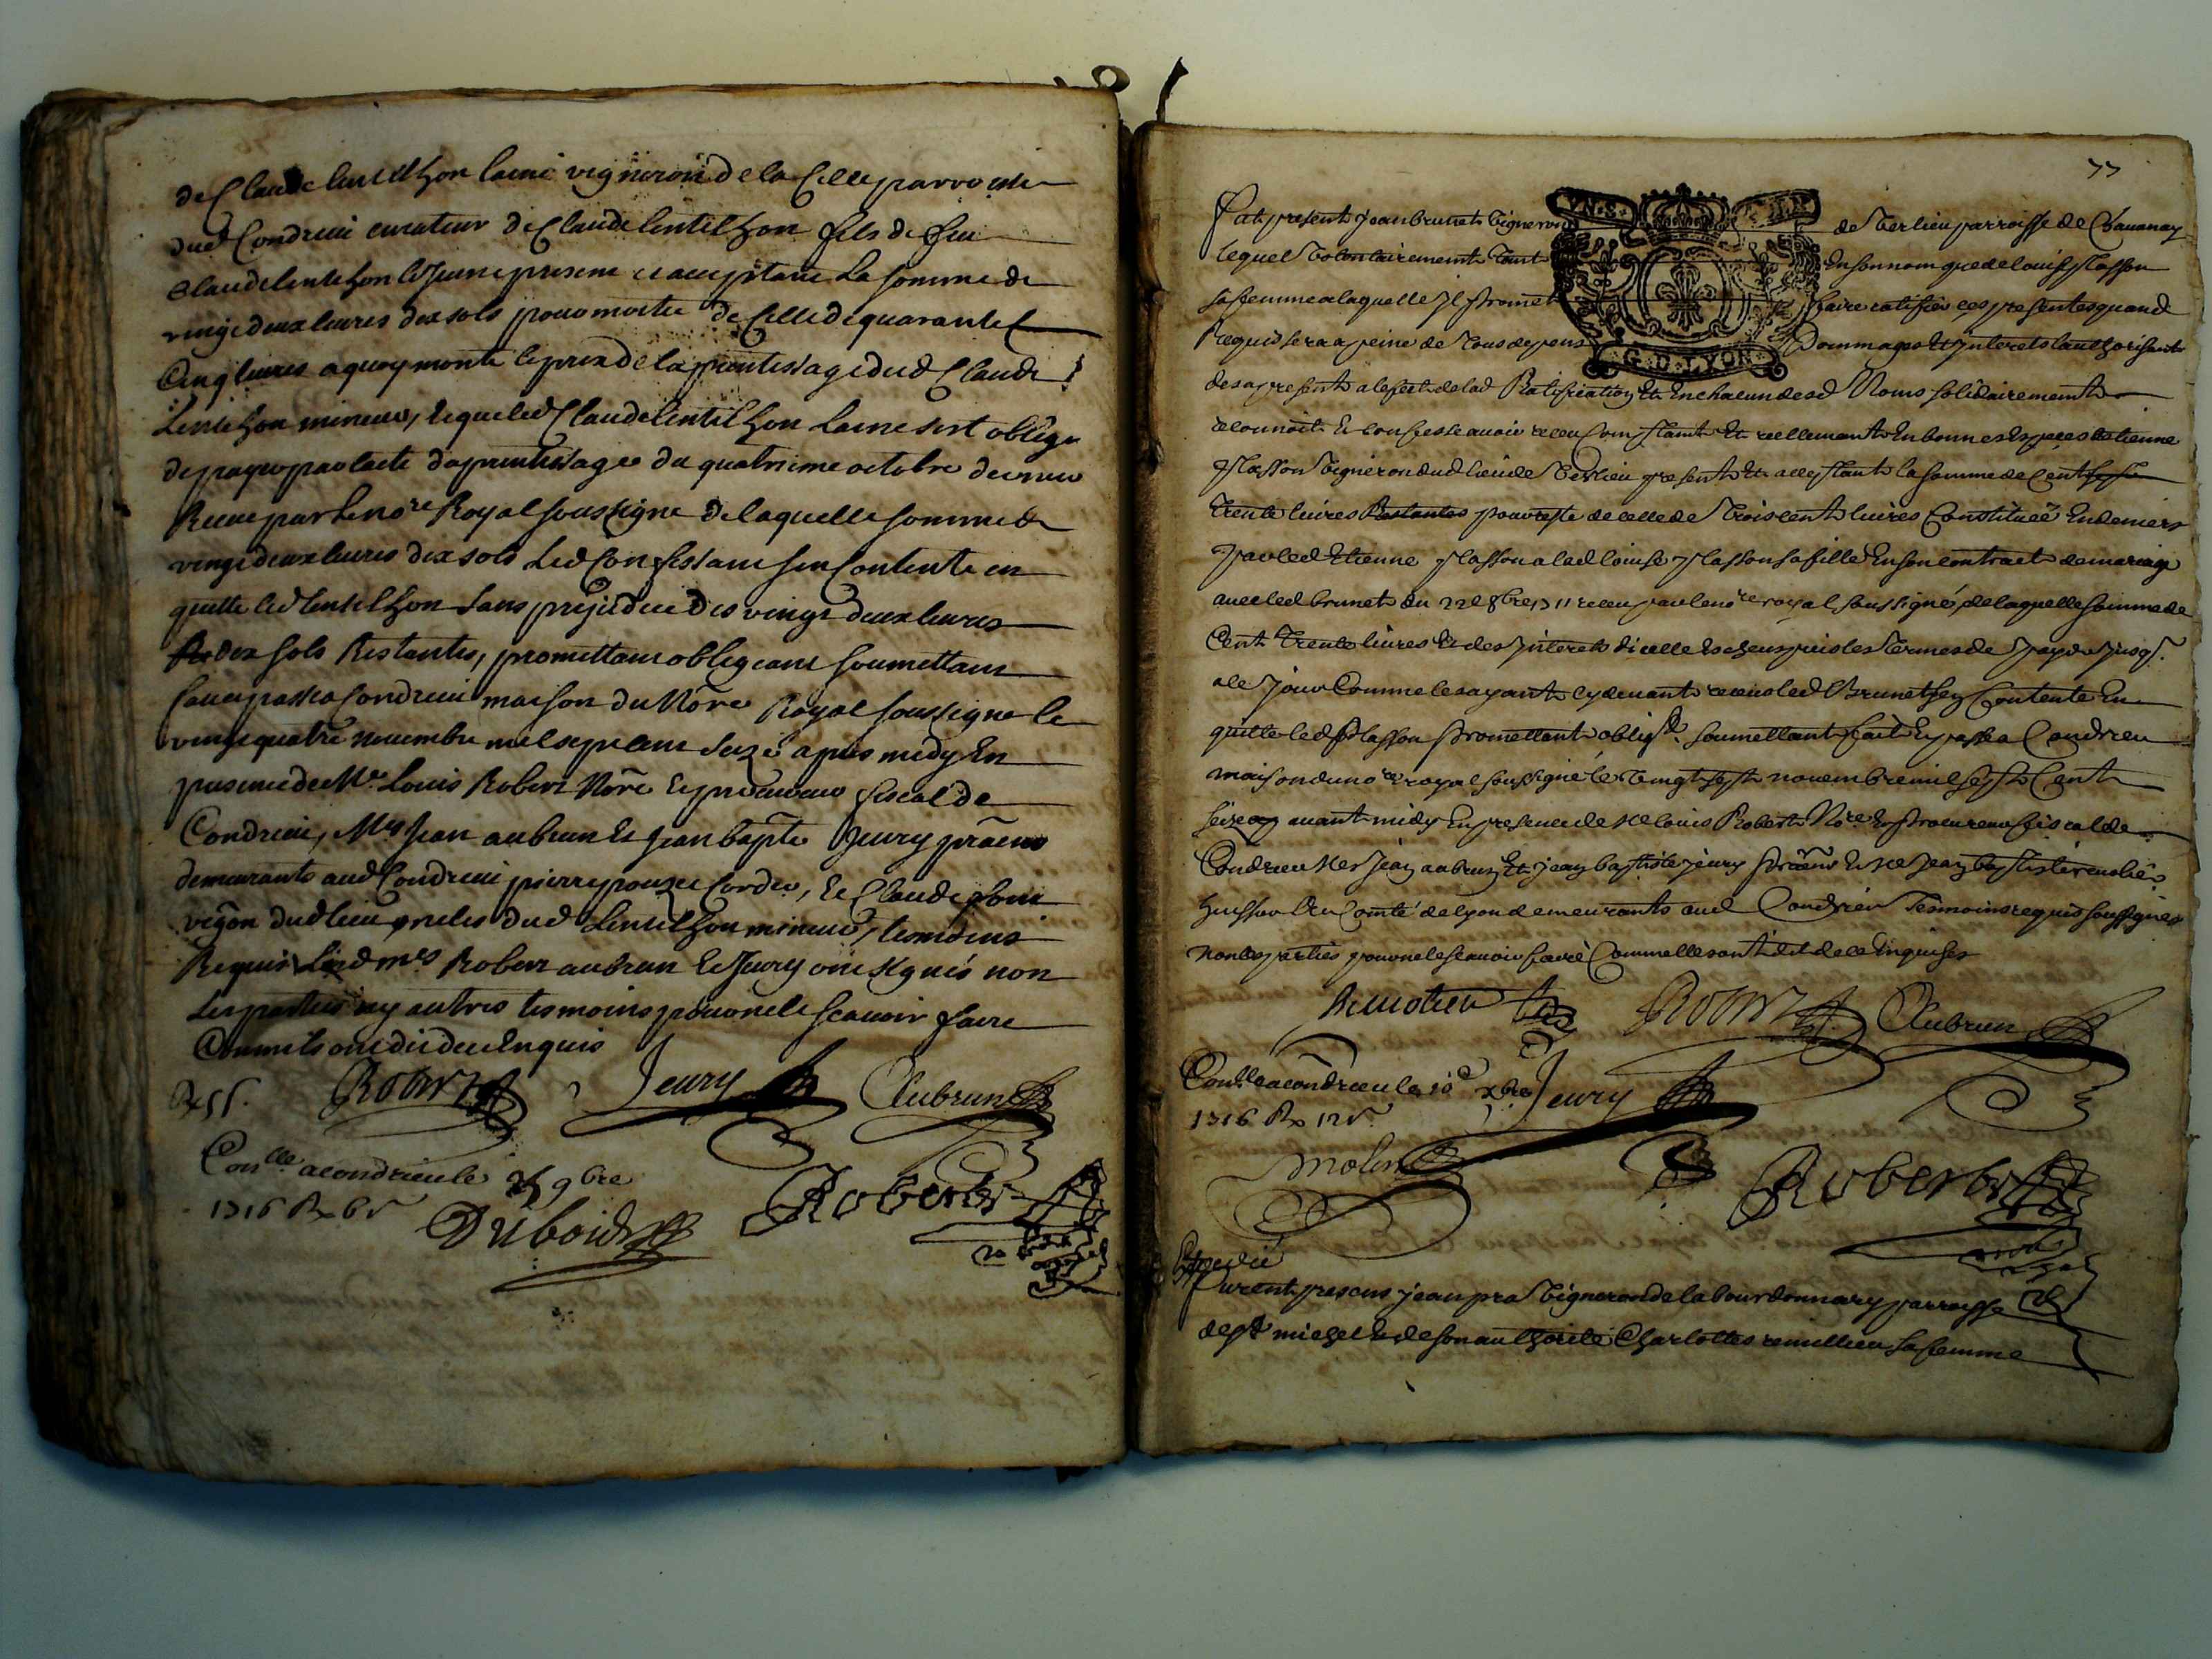 de Claude lentilhon laine vigneron de la Celle parroisse
dud Condrieu curateur de Claude lentilhon fils de feu
Claude lentilhon le Jeune present et acceptant La somme de
vingt deux livres dix sols pour moitié de Celle de quarante
Cinq livres a quoy monte le prix de laprentissage dud Claude
Lentilhon mineur, lequel led Claude lentilhon laine sest obligé
de payer par lacte daprentissage du quatrieme octobre dernier
Receu par le nore Royal soussigné de laquelle somme de
vingt deux livres dix sols Led Confessant sen Contente en
quitte led lentilhon sans prejudice des vingt deux livres
dix sols Restantes, promettant obligeant soumettant
fait et passé a Condrieu maison du Nore Royal soussigné le
vingt quatre novembre mil sept cent seize apres midy En
presence de Me Louis Robert Nore et procureur fiscal de
Condrieu, Mes Jean aubrun et Jean bapte Jeury
demeurants aud Condrieu pierre pouzet Cordier, et Claude
vigon dud lieu oncles dud Lentilhon mineur, temoins
Requis Lesd mes Robert aubrun et Jeury ont signés non
Les parties ny autres tesmoins pour ne le scavoir faire
Comme ils ont dit de ce Enquis
Robert Jeury Aubrun
Conlle a condrieu le 9bre
1716 Rx
Dubois Roberts
77
Fut present Jean brunet Vigneron de Verlieu parroisse de Chavanay
G. D. LYON
lequel Volontairement Tant En son nom que de louise plasson
sa femme a laquelle Jl Promet faire ratifier ces presentes quand
Requis sera a peine de Tous depens Dommages Et Jnterets lauthorisant
des a present a leffect de lad Ratification Et En chacun desd Noms solidairement
reconnoit Et confesse avoir receu Comptant Et reellement En bonnes Especes detienne
plasson Vigneron dud lieu de Verlieu present Et acceptant la somme de Cent
Trente livres Restantes pour reste de celle de Trois cent livres Constituée En deniers
par led Etienne plasson a lad louise plasson sa fille En son contract de mariage
avec led brunet du 22e 8bre 1711 receu par le nore royal soussigné, de laquelle somme de
Cent Trente livres Et des Jnterets dicelle Escheus puis les Termes de payer Jusq.
a ce Jour Comme les ayant cy devant receu led Brunet sen Contente En
quitte led Plasson Promettant oblig. soumettant fait Et passé a Condrieu
maison du nore royal soussigné le Vingt sept novembre mil sept Cent
seize avant midy En presence de Me louis Robert Nore Et Procureur fiscal de
Condrieu Mes Jean aubrun Et Jean baptiste Jeury Et Me Jean baptiste remolieu
huissier Au Comté de lyon demeurants aud Condrieu Tesmoins requis soussignés
non les parties pour ne le scavoir faire Comme elles ont dit de ce Enquises
Remolieu Robert Aubrun
Conlle a condrieu le 10e xbre Jeury
1716 Rx 12s
Molin
Roberts
Expedié
Furent presens Jean pra Vigneron de la bourdonnary parroisse
de st michel Et de son authorité Charlotte remillieu sa femme